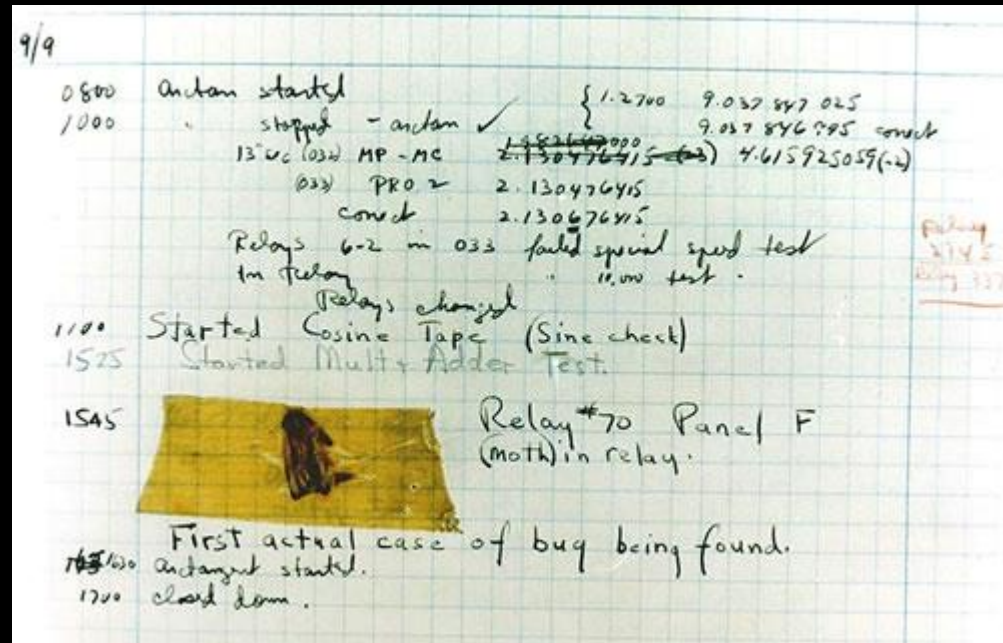 9/9
0800 antan started
1000 " stopped - antan ✓ { 1.2700 9.037 847 025
9.037 846 795 conect
13"uc (032) MP - MC 2.130476415 (-3) 4.615925059(-2)
(033) PRO 2 2.130476415
conect 2.130676415
Relays 6-2 in 033 failed special speed test
in Relay " 10,000 test .
Relays changed
1100 Started Cosine Tape (Sine check)
1525 Started Mult + Adder Test.
1545 Relay #70 Panel F
(moth) in relay.
First actual case of bug being found.
1630 antangent started.
1700 closed down .
Relay